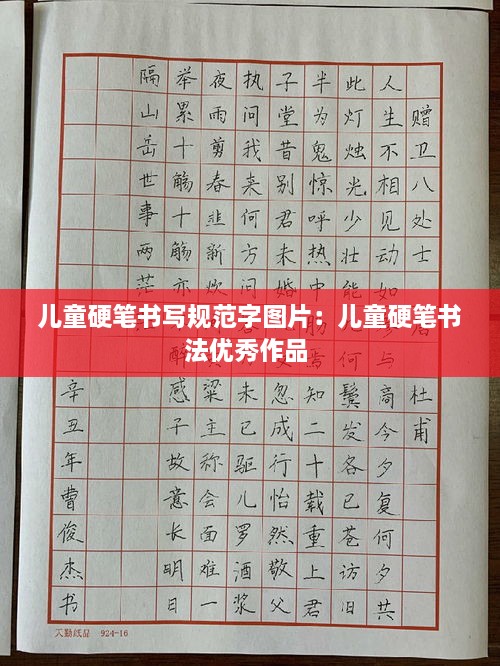 赠卫八处士 杜甫
人生不相见动如 与商今夕复何夕共
此灯烛光少壮能 何鬓发各已苍访旧
半为鬼惊呼热中 焉知二十载重上君
子堂昔别君未婚 忽成行怡然敬父
执问我来何方问 未已驱儿罗酒浆
夜雨剪春韭新炊 粱主称会面难一
举累十觞十觞亦 醉感子故意长明日
隔山岳世事两茫
辛丑年曹俊杰书
儿童硬笔书写规范字图片：儿童硬笔书
法优秀作品
天勤纸品 924-16